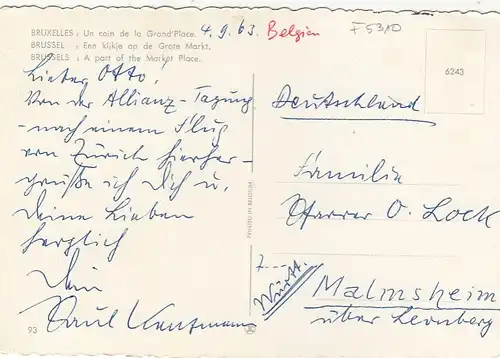 BRUXELLES : Un coin de la Grand'Place.
BRUSSEL : Een kijkje op de Grote Markt.
BRUSSELS : A part of the Market Place.
4.9.63 Belgien
F 5310
6243
Lieber Otto,
Von der Allianz-Tagung
- nach einem Flug
von Zürich hierher -
grüße ich Dich u.
Deine Lieben
herzlich
Dein
Paul
93
PRINTED IN BELGIUM
Deutschland
Familie
Pfarrer O. Lock
7
Malmsheim
(Württ.)
über Leonberg